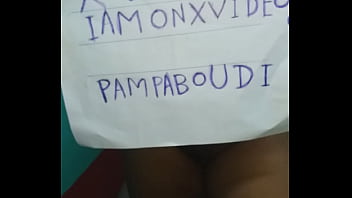 IAMONXVIDEO
PAMPABOUDI